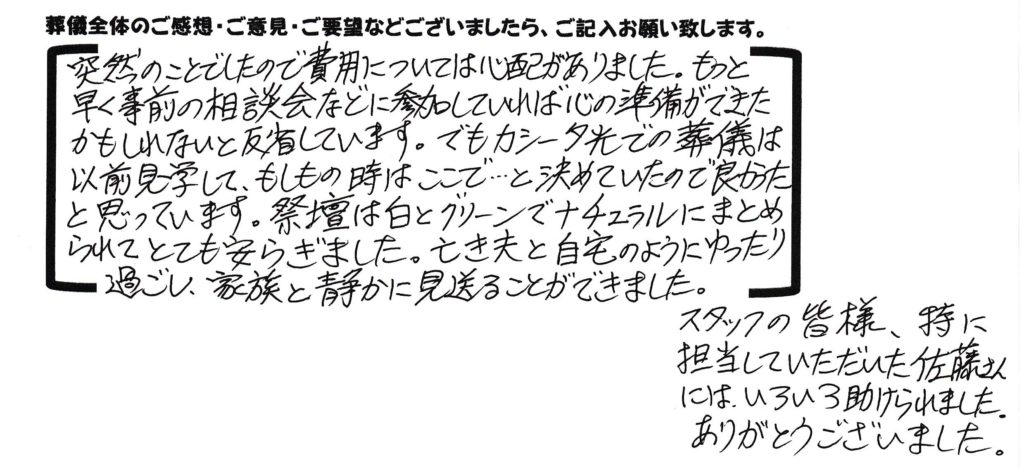 葬儀全体のご感想・ご意見・ご要望などございましたら、ご記入お願い致します。
突然のことでしたので費用については心配がありました。もっと
早く事前の相談会などに参加していれば心の準備ができた
かもしれないと反省しています。でもカシータ光での葬儀は
以前見学して、もしもの時はここで…と決めていたので良かった
と思っています。祭壇は白とグリーンでナチュラルにまとめ
られてとても安らぎました。亡き夫と自宅のようにゆったり
過ごし、家族と静かに見送ることができました。
スタッフの皆様、特に
担当していただいた佐藤さん
には、いろいろ助けられました。
ありがとうございました。